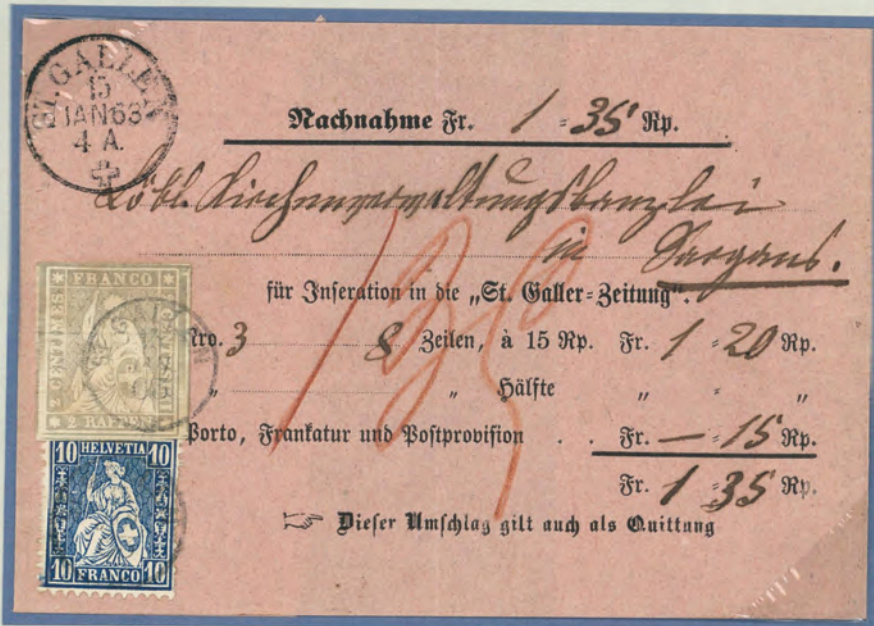 ST. GALLEN
15
IAN 63
4 A.
Nachnahme Fr. 1 = 35 Rp.
Löbl. Kirchenverwaltungskanzlei
in Sargans.
135
für Inseration in die „St. Galler-Zeitung“.
Nro. 3 8 Zeilen, à 15 Rp. Fr. 1 = 20 Rp.
„ „ Hälfte „ = „
Porto, Frankatur und Postprovision . . Fr. — 15 Rp.
Fr. 1 = 35 Rp.
☞ Dieser Umschlag gilt auch als Quittung
FRANCO
2 CENTIMES
2 RAPPEN
10 HELVETIA 10
10 FRANCO 10